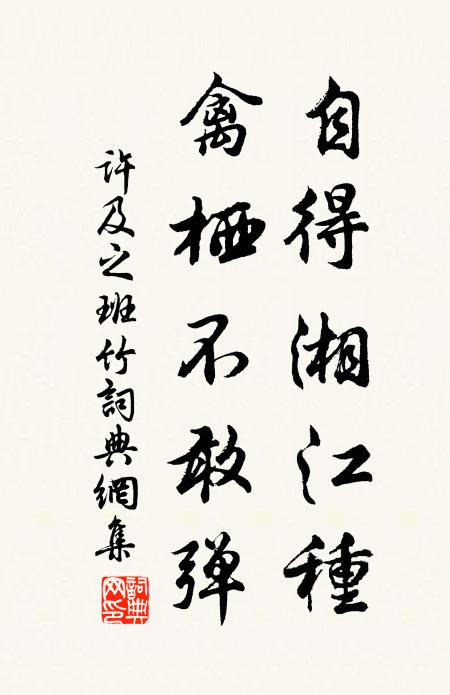 自得湘江種
禽栖不敢弹
许及之班竹詞典網集
詞典网印